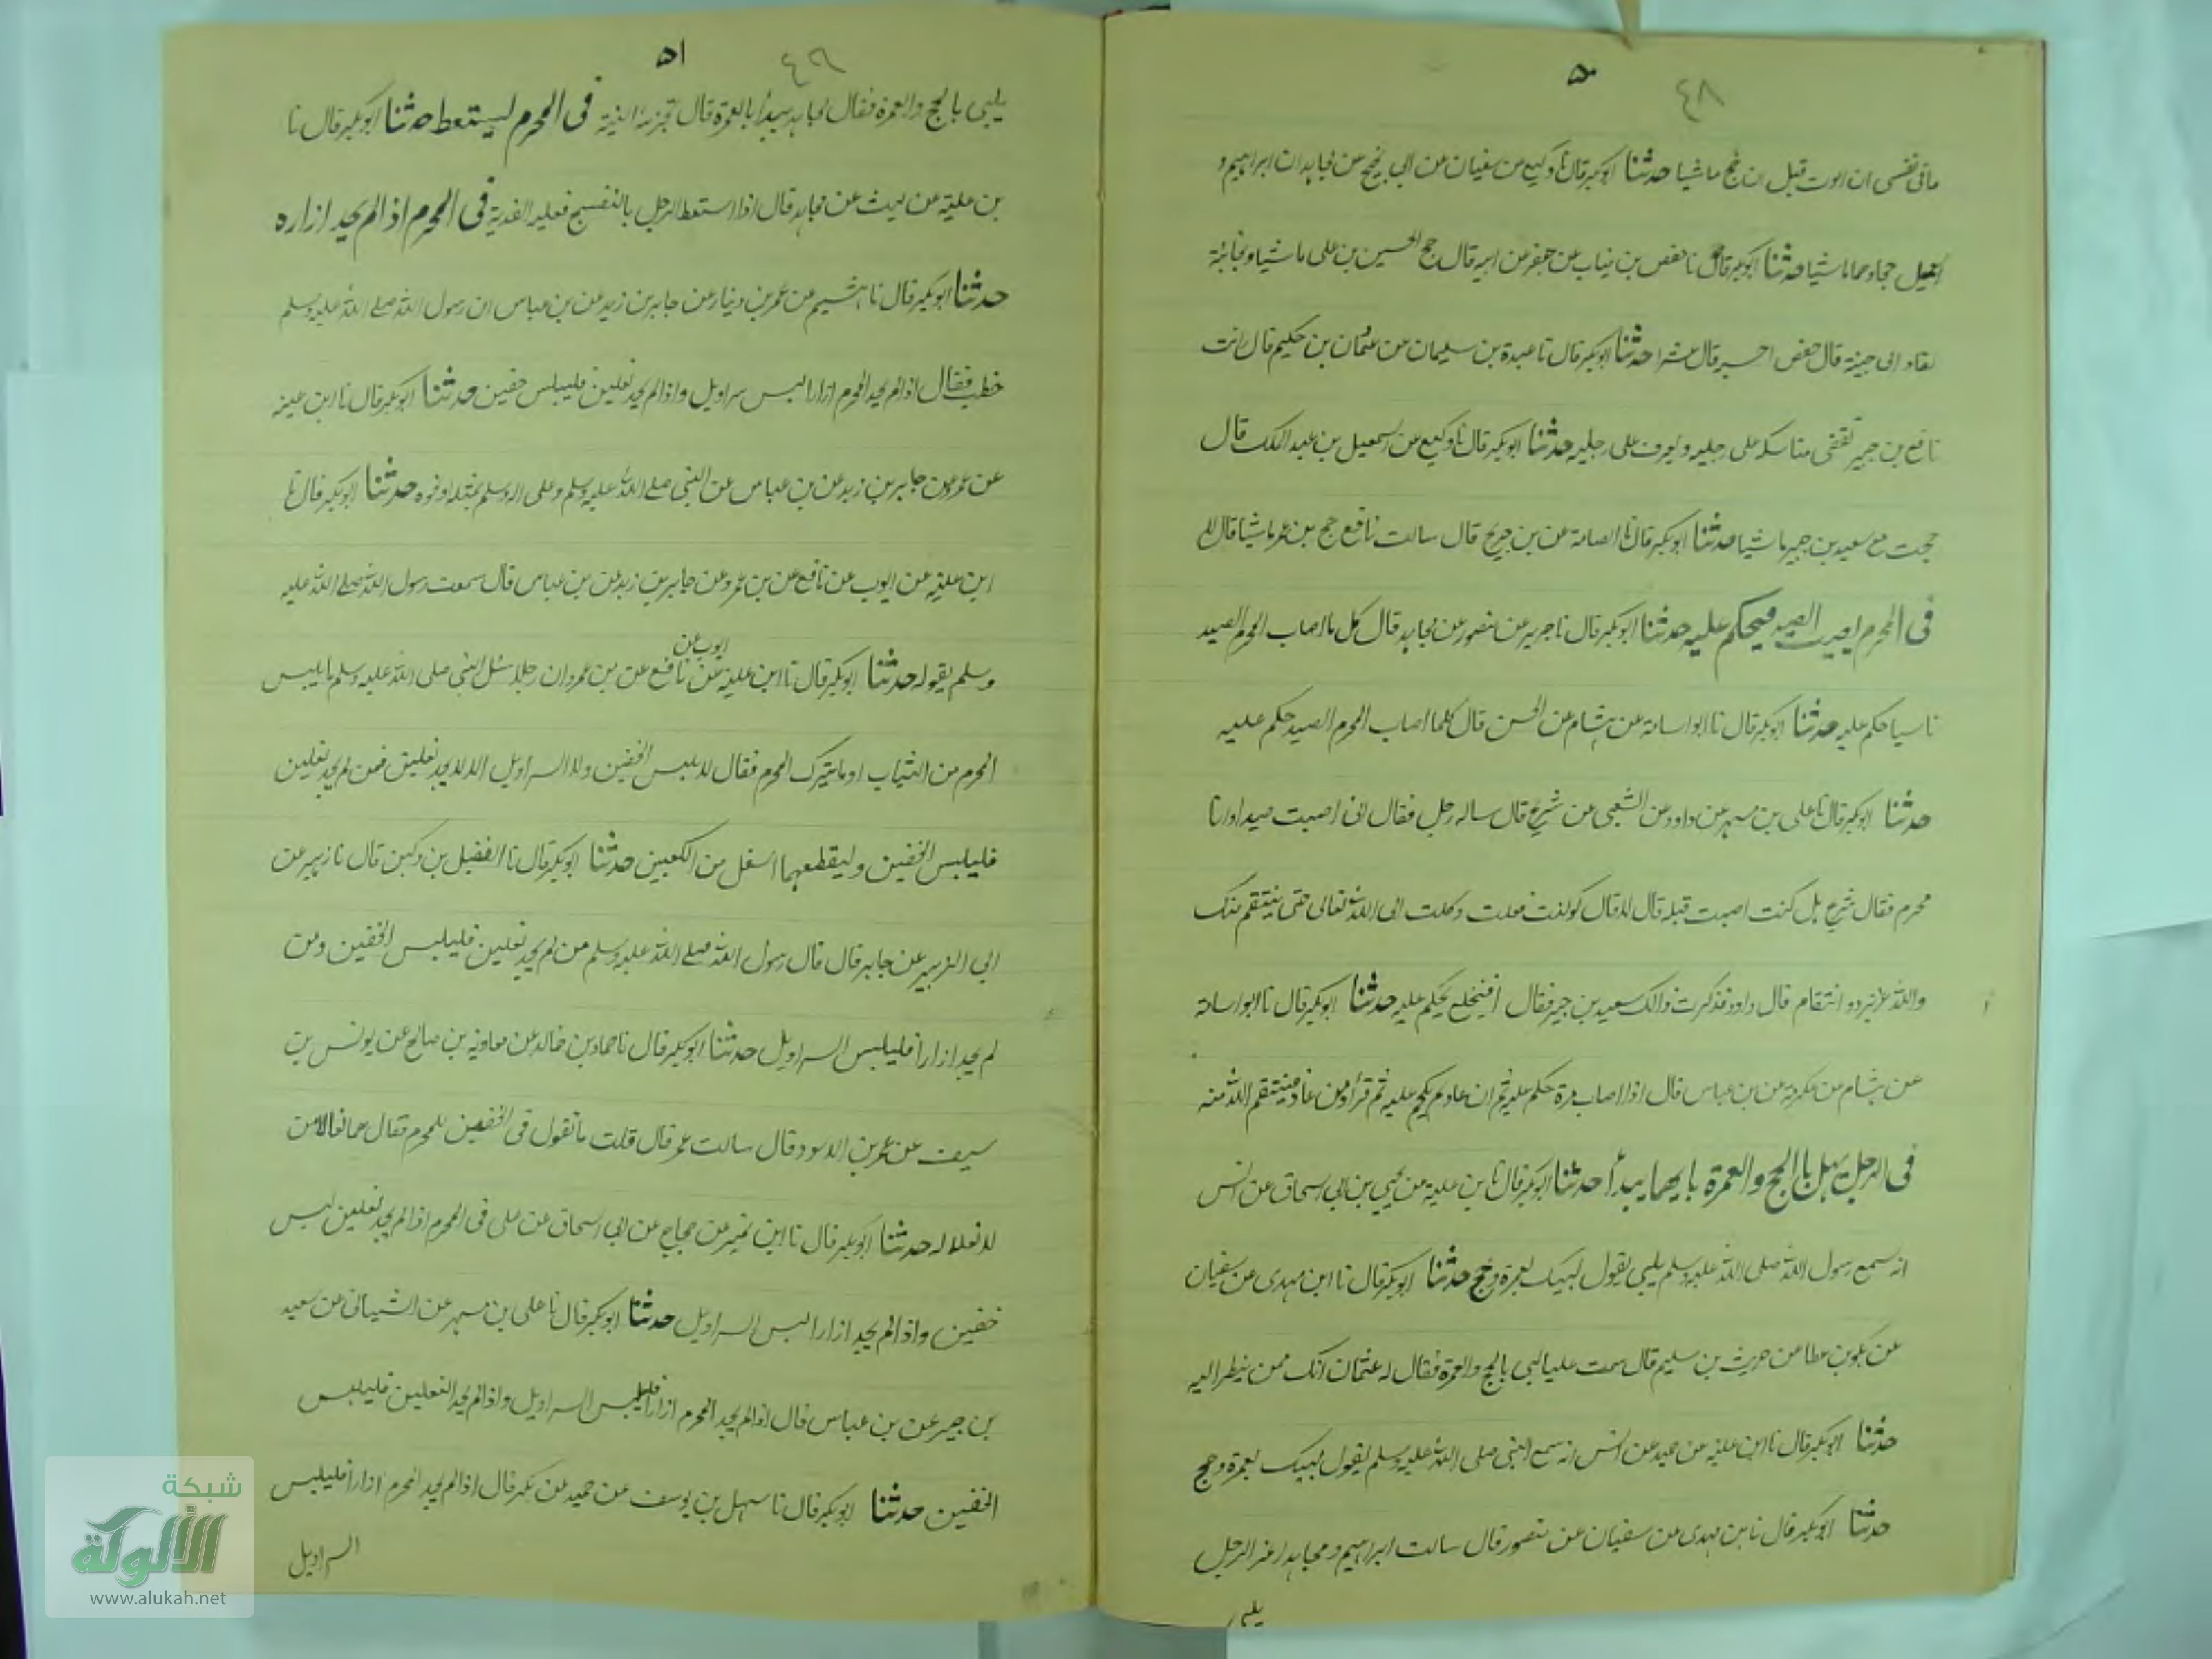 ٤٨
٥٠
ما في نفسي ان اموت قبل ان احج ماشيا حدثنا ابوبكر قال نا وكيع عن سفيان عن ابي نجيح عن مجاهد ان ابراهيم و
اسمعيل حجا وهما ماشيا حدثنا ابوبكر قال نا حفص بن غياث عن جعفر عن ابيه قال حج الحسين بن علي ماشيا ونجائبه
تقاد الى جنبه قال حفص احسبه قال عشرا حدثنا ابوبكر قال نا عبدة بن سليمان عن عثمان بن حكيم قال رايت
نافع بن جبير تقضى مناسكه على رجليه ويعرف على رجليه حدثنا ابوبكر قال نا وكيع عن اسمعيل بن عبد الملك قال
حججت مع سعيد بن جبير ماشيا حدثنا ابوبكر قال نا ابواسامة عن بن جريج قال سالت نافع حج بن عمر ماشيا قال لا
في المحرم يصيب الصيد فيحكم عليه حدثنا ابوبكر قال نا جرير عن منصور عن مجاهد قال كل ما اصاب المحرم الصيد
ناسيا حكم عليه حدثنا ابوبكر قال نا ابواسامة عن هشام عن الحسن قال كلما اصاب المحرم الصيد حكم عليه
حدثنا ابوبكر قال نا علي بن مسهر عن داود عن الشعبي عن شريح قال ساله رجل فقال اني اصبت صيدا وانا
محرم فقال شريح هل كنت اصبت قبله قال لا قال لو كنت فعلت وكلت الى الله تعالى حتى ينتقم منك
والله عزيز ذو انتقام قال داود فذكرت ذالك لسعيد بن جبير فقال افيخلع يحكم عليه حدثنا ابوبكر قال نا ابواسامة
عن هشام عن عكرمة عن بن عباس قال اذا اصاب مرة حكم عليه ثم ان عاد لم يحكم عليه ثم قرأ ومن عاد فينتقم الله منه
في الرجل يهل بالحج والعمرة بايهما يبدأ حدثنا ابوبكر قال نا بن علية عن يحيى بن ابي اسحاق عن انس
انه سمع رسول الله صلى الله عليه وسلم يلبي يقول لبيك بعمرة وحج حدثنا ابوبكر قال نا ابن مهدى عن سفيان
عن بكير بن عطا عن حريث بن سليم قال سمعت عليا لبى بالحج والعمرة فقال له عثمان انك ممن ينظر اليه
حدثنا ابوبكر قال نا ابن علية عن حميد عن انس انه سمع النبي صلى الله عليه وسلم يقول لبيك بعمرة وحج
حدثنا ابوبكر قال نا بن مهدى عن سفيان عن منصور قال سالت ابراهيم ومجاهدا عن الرجل
يلبى
٤٩
٥١
يلبي بالحج والعمرة فقال مجاهد يبدأ بالعمرة قال تجزئه النية في المحرم ليستعط حدثنا ابوبكر قال نا
بن علية عن ليث عن مجاهد قال اذا استعط الرجل بالبنفسج فعليه الفدية في المحرم اذا لم يجد ازاره
حدثنا ابوبكر قال نا هشيم عن عمرو بن دينار عن جابر بن زيد عن بن عباس ان رسول الله صلى الله عليه وسلم
خطب فقال اذا لم يجد المحرم ازارا لبس سراويل واذا لم يجد نعلين فليلبس خفين حدثنا ابوبكر قال نا ابن عينه
عن عمرو عن جابر بن زيد عن بن عباس عن النبي صلى الله عليه وسلم وعلى اله وسلم بمثله او نحوه حدثنا ابوبكر قال نا
ابن علية عن ايوب عن نافع عن بن عمر وعن جابر بن زيد عن بن عباس قال سمعت رسول الله صلى الله عليه
ايوب عن
وسلم يقوله حدثنا ابوبكر قال نا ابن علية عن نافع عن بن عمر ان رجلا سئل النبي صلى الله عليه وسلم ما يلبس
المحرم من الثياب او ما يترك المحرم فقال لا يلبس الخفين ولا السراويل الا لا يجد نعلين فمن لم يجد نعلين
فليلبس الخفين وليقطعهما اسفل من الكعبين حدثنا ابوبكر قال نا الفضيل بن دكين قال نا زهير عن
ابي الزبير عن جابر قال قال رسول الله صلى الله عليه وسلم من لم يجد نعلين فليلبس الخفين ومن
لم يجد ازارا فليلبس السراويل حدثنا ابوبكر قال نا حماد بن خالد عن معاوية بن صالح عن يونس بن
سيف عن عمر بن الاسود قال سالت عمر قال قلت ما تقول في الخفين للمحرم فقال هما نعالا من
لا نعلا له حدثنا ابوبكر قال نا ابن نمير عن حجاج عن ابي اسحاق عن علي في المحرم اذا لم يجد نعلين لبس
خفين واذا لم يجد ازارا لبس السراويل حدثنا ابوبكر قال نا علي بن مسهر عن الشيباني عن سعيد
بن جبير عن بن عباس قال اذا لم يجد المحرم ازارا فليلبس السراويل واذا لم يجد النعلين فليلبس
الخفين حدثنا ابوبكر قال نا سهل بن يوسف عن حميد عن بكر قال اذا لم يجد المحرم ازارا فليلبس
السراويل
شبكة
الألوكة
www.alukah.net